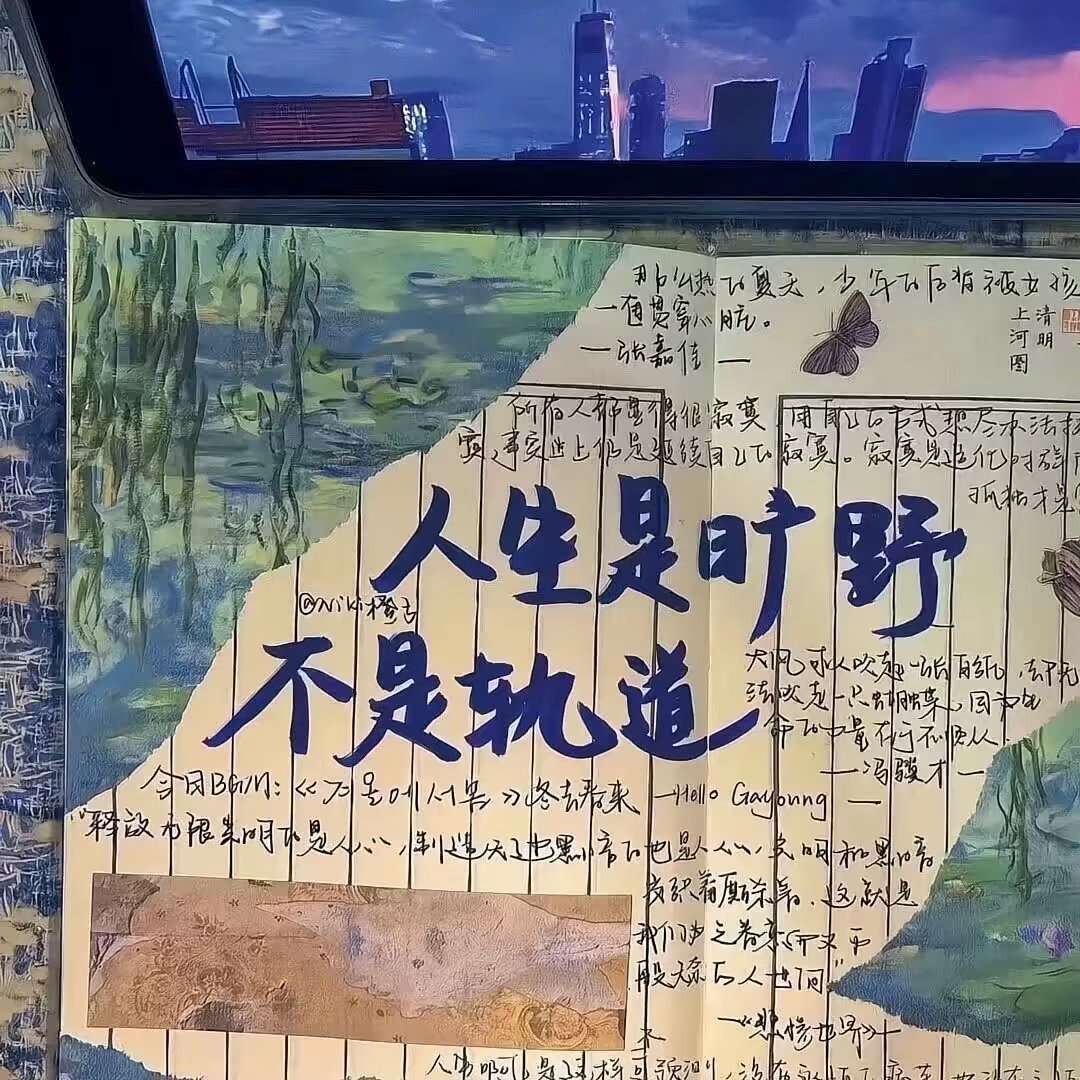 那么热的夏天，少年的后背被女孩
一直贯穿心脏。
—张嘉佳—
清明
上河图
所有人都觉得很寂寞，用自己的方式想尽办法
寞，事实上仍是延续自己的寂寞。寂寞是造化对群
孤独才是
人生是旷野
@Niki橙子
不是轨道
大风可以吹起一张白纸，却无
法吹走一只蝴蝶，因为生
命的力量在于不顺从
—冯骏才—
今日BGM：《겨울에서 봄》冬去春来 —Hello Gayoung—
"释放无限光明的是人心，制造无边黑暗的也是人心，光明和黑暗
交织着厮杀着，这就是
我们为之眷恋而又万
般无奈的人世间"
—《悲惨世界》—
不